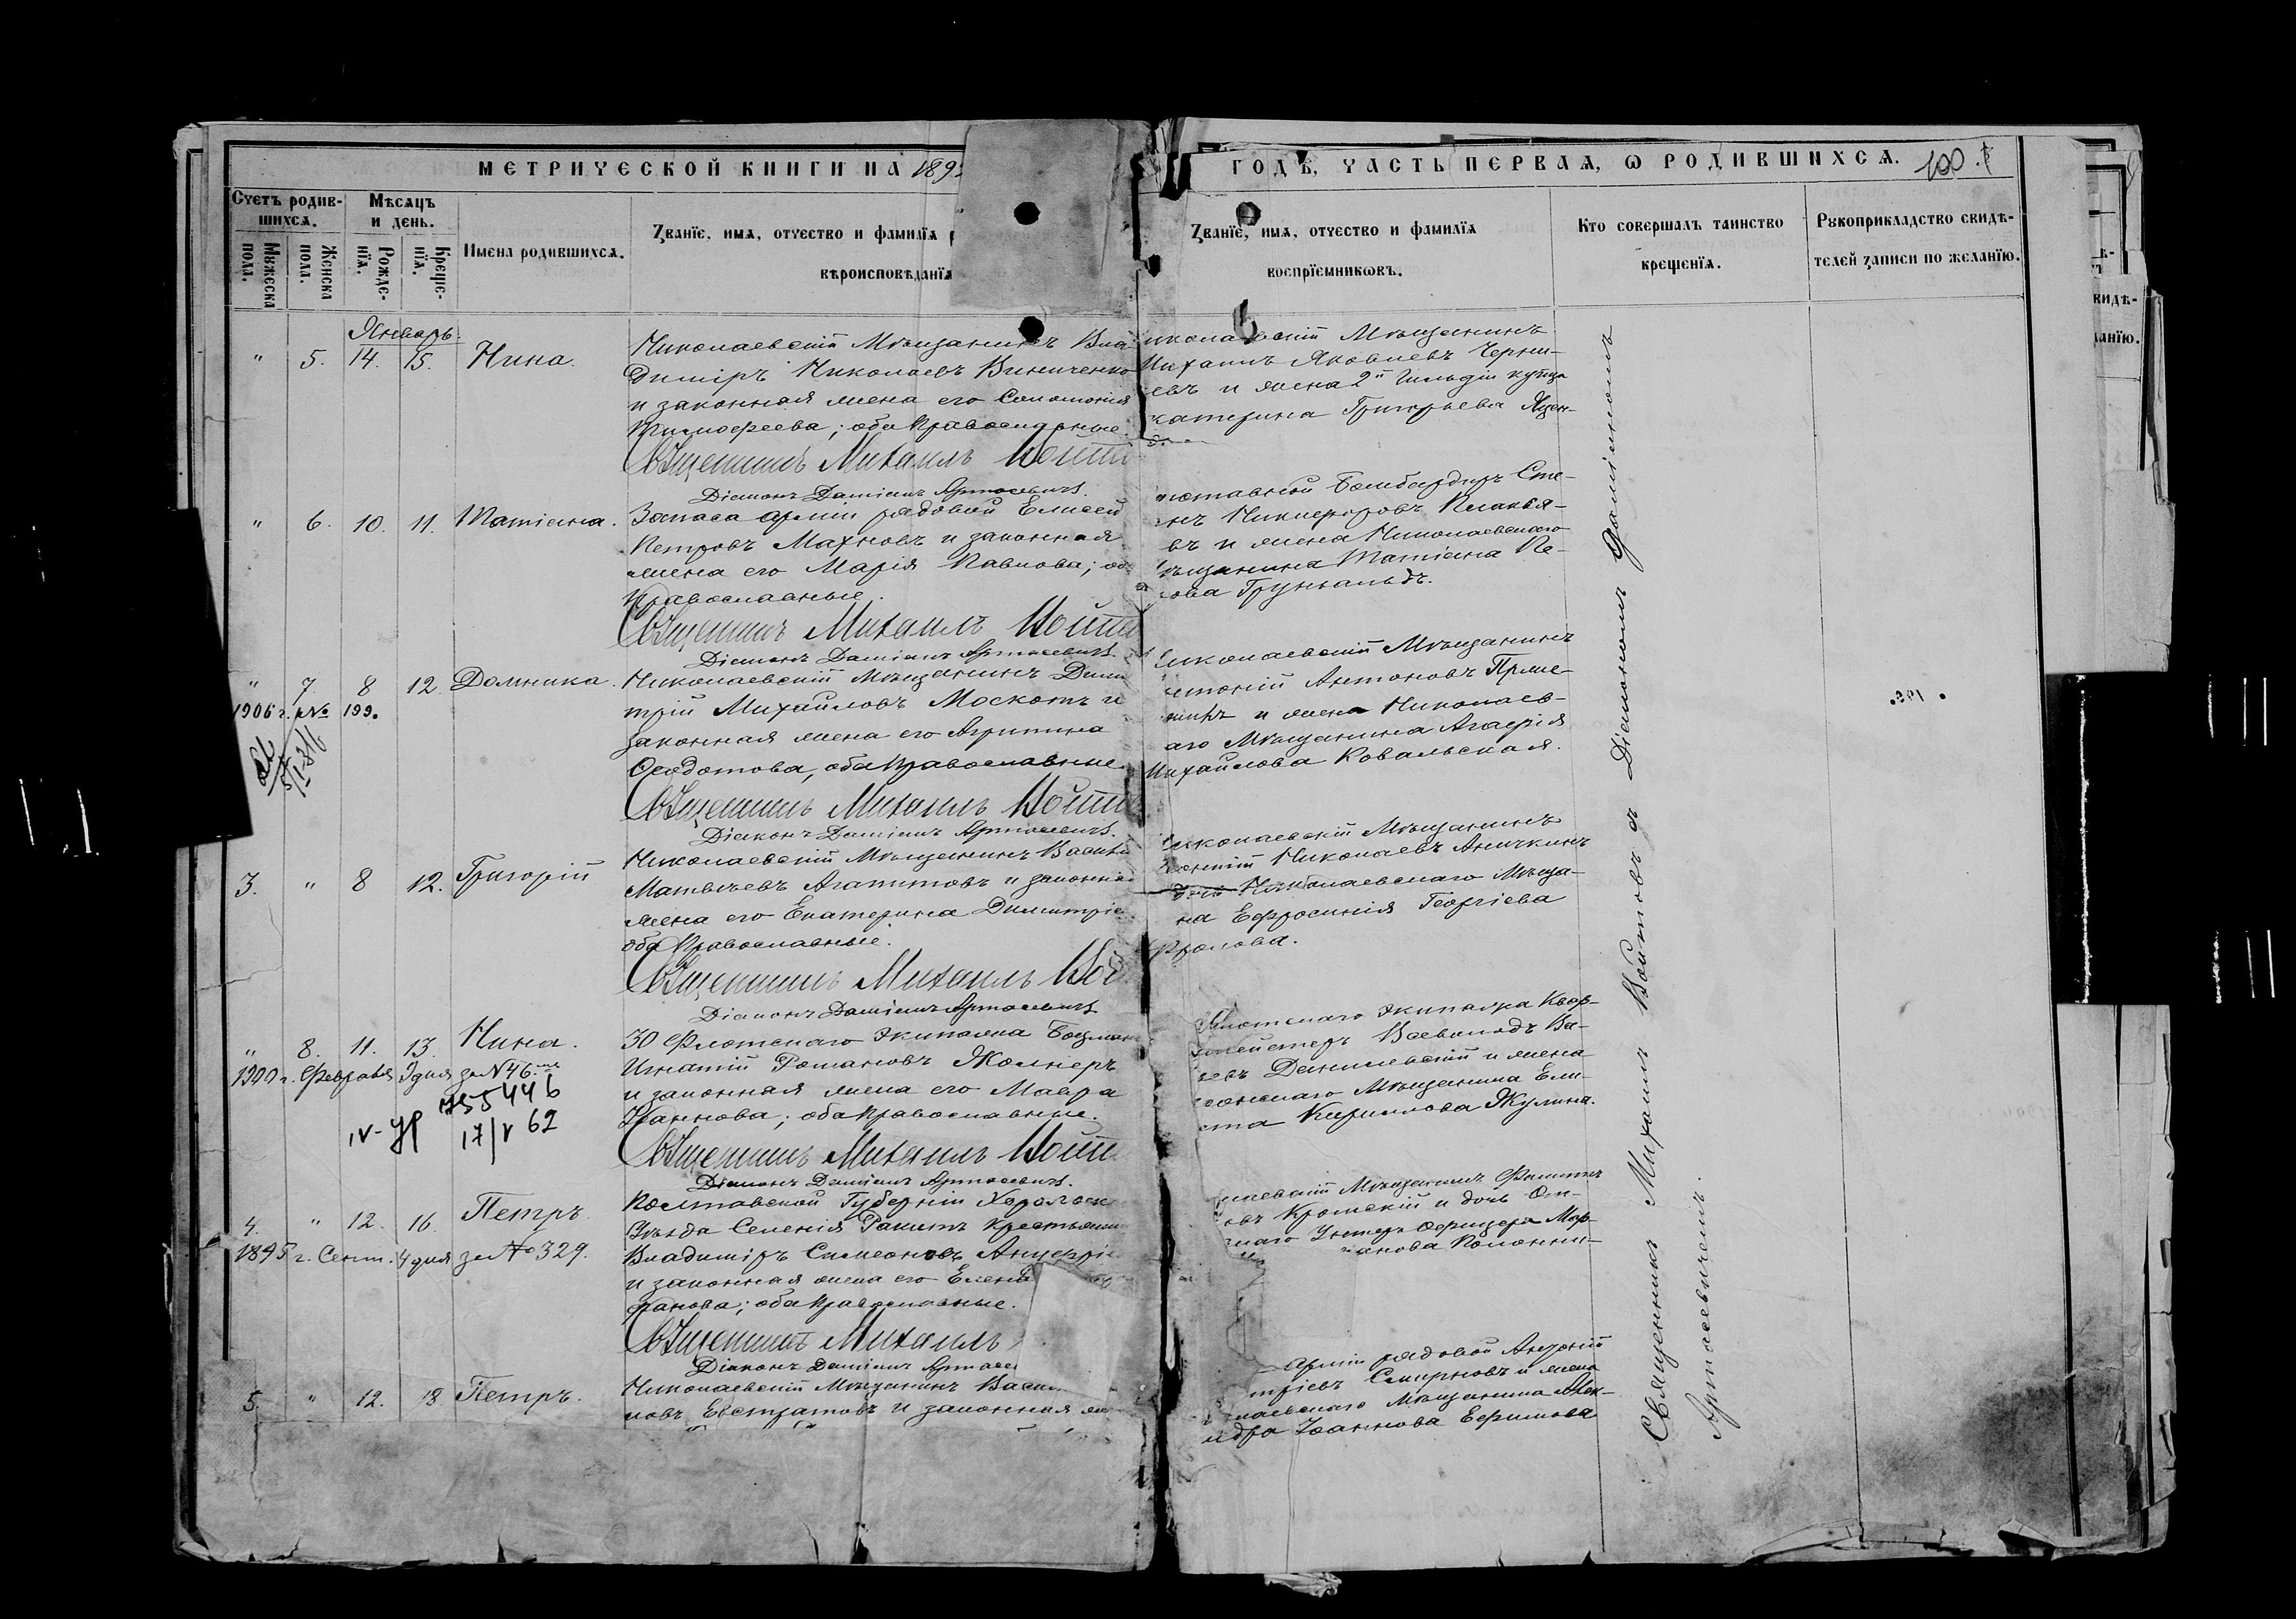 МЕТРИЧЕСКОЙ КНИГИ НА 189
ГОДЪ, ЧАСТЬ ПЕРВАЯ, Ѡ РОДИВШИХСЯ. 100.
Счетъ родив-
шихся.
Мужеска
пола.
Женска
пола.
Мѣсяцъ
и день.
Рожде-
нїя.
Креще-
нїя.
Имена родившихся.
Званїе, имя, отчество и фамилїя
вѣроисповѣданїя
Званїе, имя, отчество и фамилїя
воспрїемниковъ.
Кто совершалъ таинство
крещенїя.
Рукоприкладство свидѣ-
телей записи по желанїю.
Январь.
" 5. 14. 15. Нина.
Николаевскій Мѣщанинъ Вла-
димiръ Николаевъ Винниченко
и законная жена его Соломонія
Тимоѳеева; оба православные.
Священникъ Михаилъ Войт
Діаконъ Даміанъ Артасевичъ.
иколаевскій Мѣщанинъ
Михаилъ Яковлевъ Черны-
евъ и жена 2й Гильдіи купца
катерина Григорьева Яцен-
" 6. 10. 11. Татіана.
Запаса арміи рядовой Елисей
Петровъ Махновъ и законная
жена его Марія Павлова; об
православные.
Священникъ Михаилъ Войт
Діаконъ Даміанъ Артасевичъ.
тставной Бомбардиръ Сте-
нъ Никифоровъ
въ и жена Николаевскаго
ѣщанина Татіана Пе-
ова Грунвальдъ.
" 7 8 12 Домника.
1906 г. № 199.
Николаевскій Мѣщанинъ Дими
трій Михайловъ Москотъ и
законная жена его Агрипина
Ѳеодотова, оба православные.
Священникъ Михаилъ Войт
Діаконъ Даміанъ Артасевичъ.
иколаевскій Мѣщанинъ
нтоній Антоновъ
и жена Николаев-
аго Мѣщанина Агафія
Михайлова Ковальская.
3. " 8 12. Григорій
Николаевскій Мѣщанинъ Василій
Матвѣевъ Агапитовъ и законная
жена его Екатерина Димитріе
оба православные.
Священникъ Михаилъ Вой
Діаконъ Даміанъ Артасевичъ
иколаевскій Мѣщанинъ
Николаевъ Аничкинъ
дочь Николаевскаго Мѣща-
на Ефросинія Георгіева
Фролова.
" 8. 11. 13. Нина.
1900 г. Февраля 3 дня за № 46.
755446
17/V 62
30 Флотскаго Экипажа Боцман
Игнатій Романовъ Жолнеръ
и законная жена его Мавра
Іоаннова; оба православные.
Священникъ Михаилъ Войт
Діаконъ Даміанъ Артасевичъ.
Флотскаго Экипажа Квар-
мейстеръ Всеволодъ Ва-
евъ Данилевскій и жена
сонскаго Мѣщанина Ели-
ета Кириллова Жулина.
4. " 12. 16. Петръ.
1895 г. Сент. 4 дня за № 329.
Полтавской Губерніи Хорольск
Уѣзда Селенія Ракитъ крестьянин
Владиміръ Симеоновъ
и законная жена его Елена
фанова; оба православные.
Священникъ Михаилъ
Діаконъ Даміанъ Артасе
лаевскій Мѣщанинъ Филиппъ
овъ Кромскій и дочь От-
наго Унтеръ Офицера Мар-
анова
5. " 12. 18 Петръ.
Николаевскій Мѣщанинъ Васил
ловъ Евстратовъ и законная же
арміи рядовой Андрей
тріевъ Смирновъ и жена
лаевскаго Мѣщанина Алек-
ндра Іоаннова Ефимова
Священникъ Михаилъ Войтовъ съ Діакономъ Даміаномъ
Артасевичемъ.